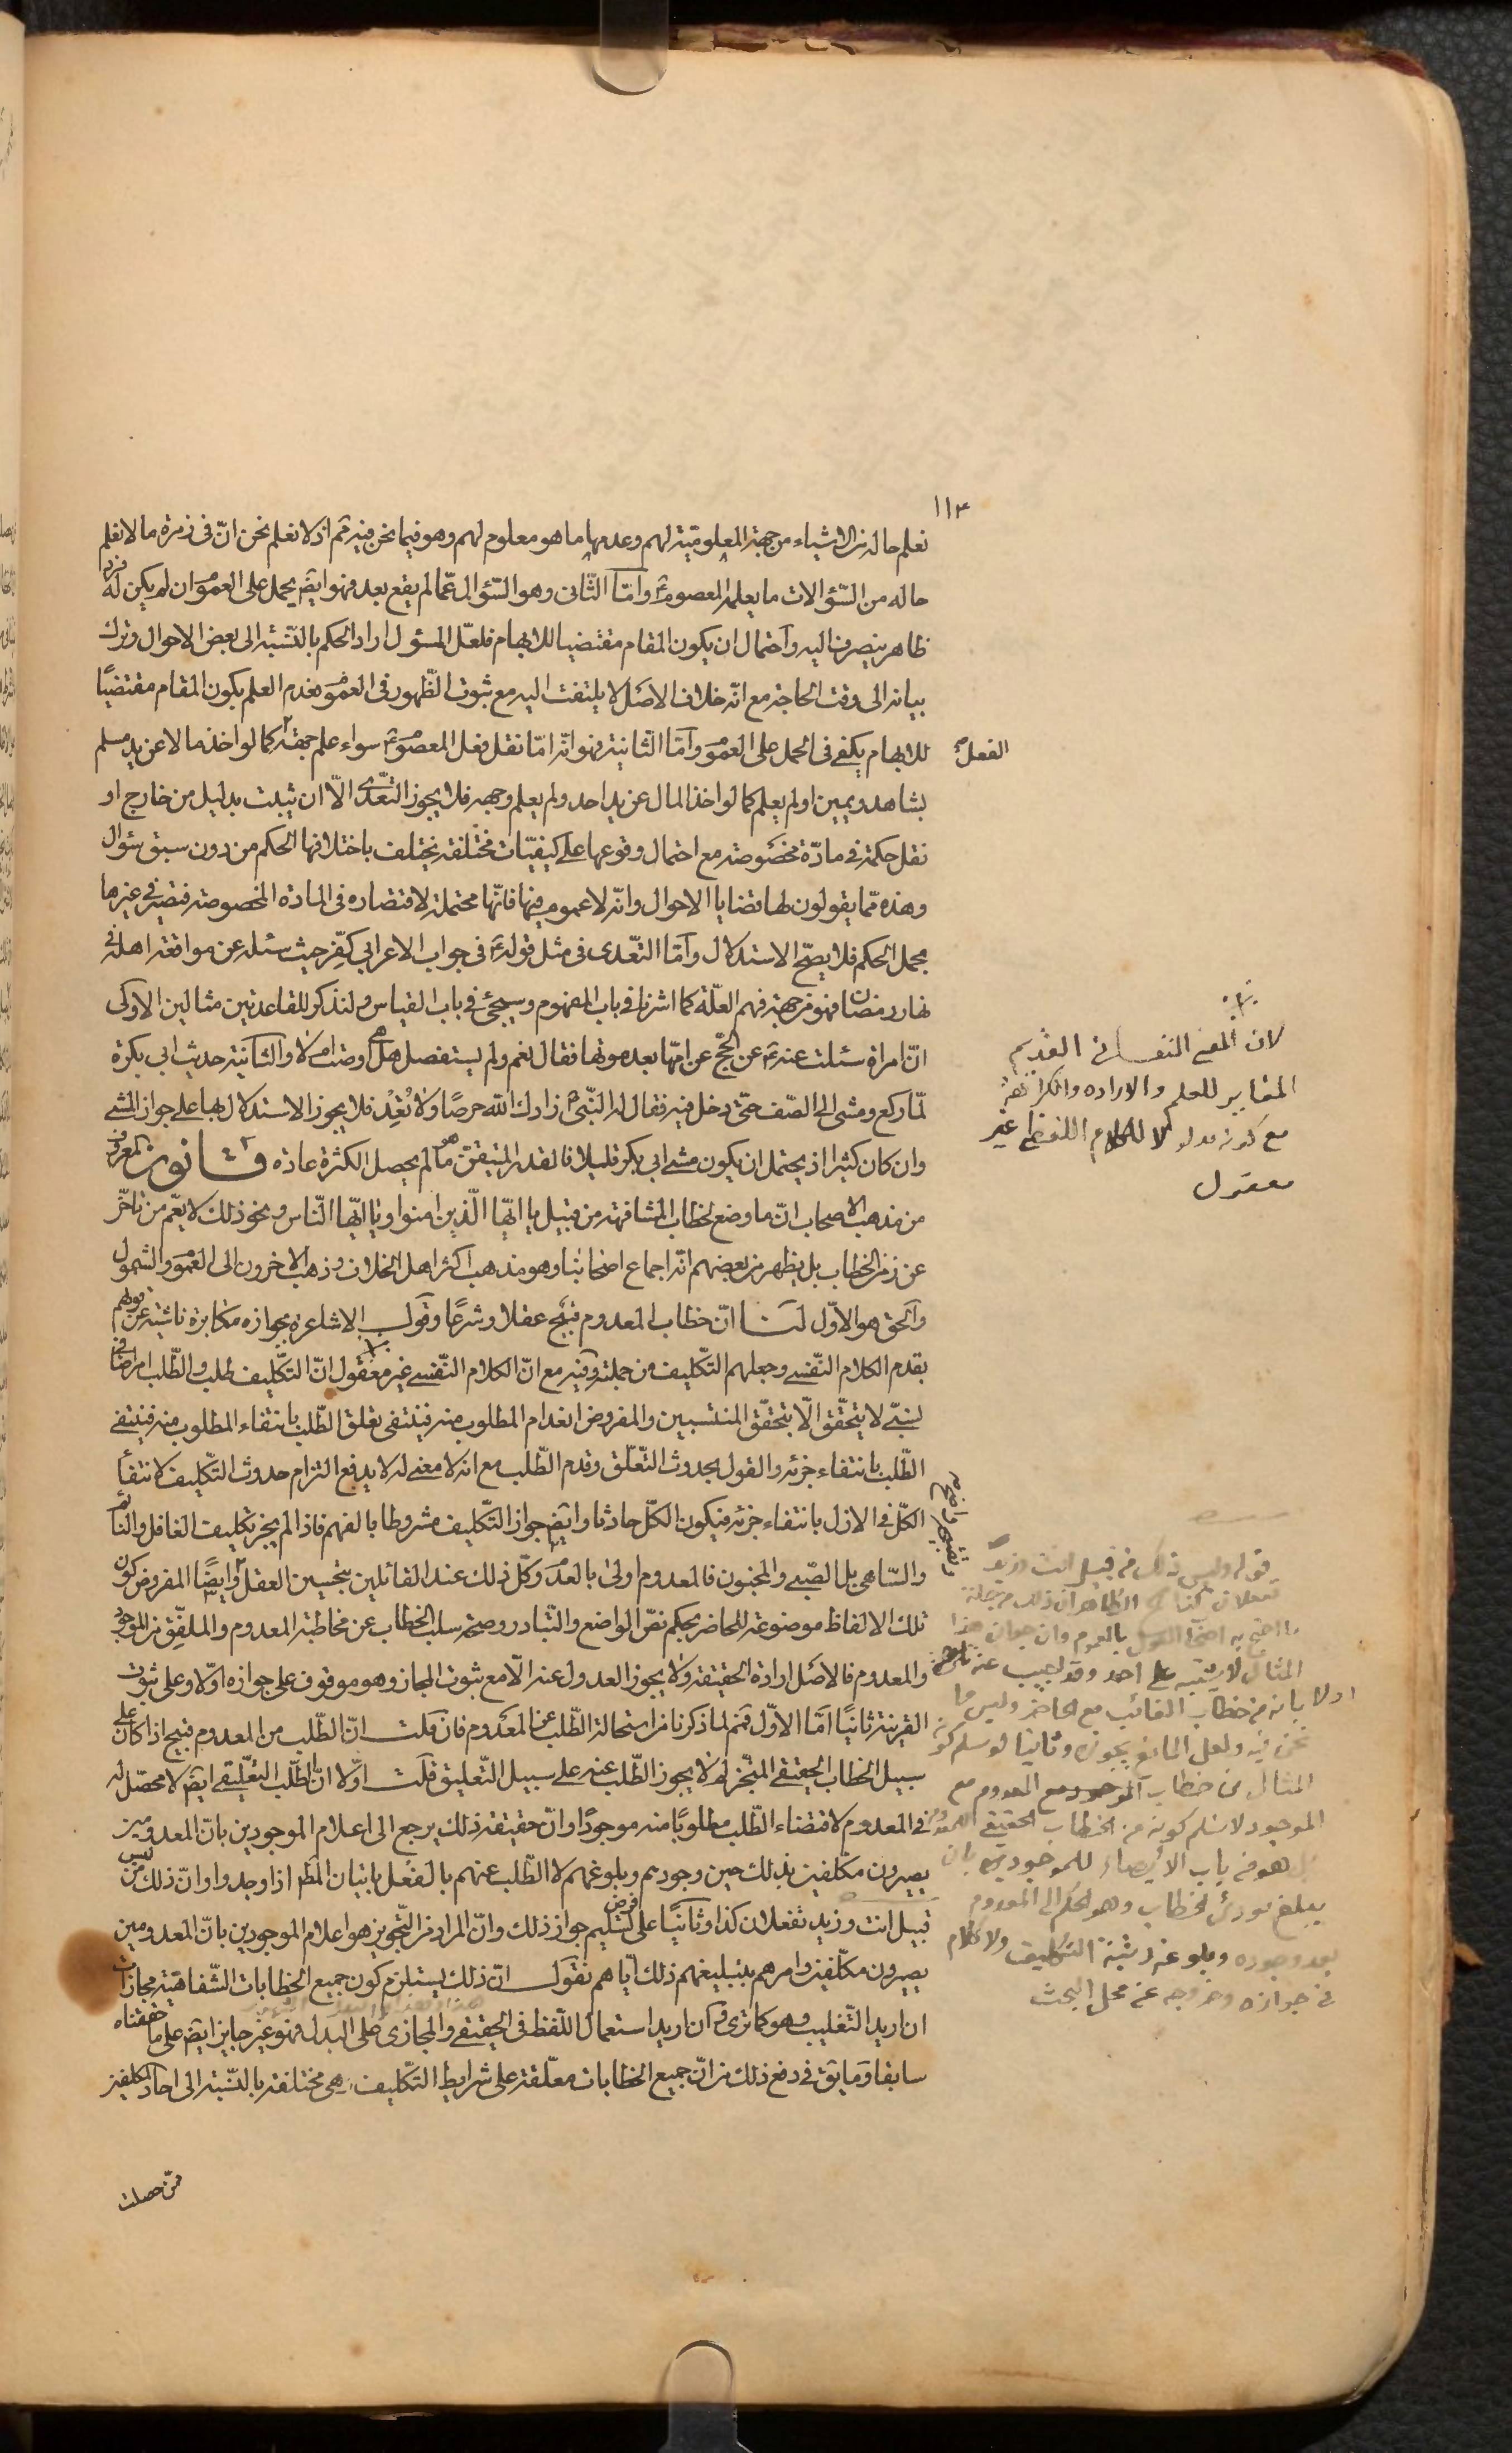 ١١٣
نعلم حاله من الاشياء من جهة المعلوميّة لهم وعدمها ما هو معلوم لهم وهو فيما نحن فيه ثم اذ لا نعلم نحن انّ فى زمرة ما لا نعلم
حاله من السّؤالات ما يعلمه المعصوم ع وامّا الثّانى وهو السّؤال عمّا لم يقع بعد فهو ايضً يحمل على العموم ان لم يكن له فرد
ظاهر ينصرف اليه واحتمال ان يكون المقام مقتضيا للابهام فلعلّ المسئول اراد الحكم بالنّسبة الى بعض الاحوال وترك
بيانه الى وقت الحاجة مع انّه خلاف الاصل لا يلتفت اليه مع ثبوت الظّهور فى العموم فعدم العلم بكون المقام مقتضيًا
للابهام يكفى فى الحمل على العموم وامّا الثّانية فهو انّه امّا نقل فعل المعصوم ع سواء علم جهة كما لو اخذ مالا عن يد مسلم
الفعل
بشاهد ويمين او لم يعلم كما لو اخذ المال عن يد احد ولم يعلم وجهه فلا يجوز التعدّى الّا ان يثبت بدليل من خارج او
نقل حكمه فى مادّة مخصوصة مع احتمال وقوعها على كيفيّات مختلفة يختلف باختلافها الحكم من دون سبق سؤال
وهذه ممّا يقولون لها قضايا الاحوال وانّه لا عموم فيها فانّها محتملة لاقتصاره فى المادة المخصوصة فتصير فى غيرها
مجمل الحكم فلا يصحّ الاستدلال وامّا التعّدى فى مثل قوله ع فى جواب الاعرابى كفّر حيث سئله عن مواقعة اهله فى
نهار رمضان فهو من جهة فهم العلّة كما اشرنا فى باب المفهوم وسيجئ فى باب القياس ولنذكر للقاعدتين مثالين الاولى
انّ امراة سئلت عنه ع عن الحجّ عن امّها بعد موتها فقال نعم ولم يستفصل هل اوصت ام لا والثانية حديث ابى بكرة
لمّا ركع ومشى الى الصّف حتى دخل فيه فقال له النّبى ص زادك الله حرصًا ولا تَعُدْ فلا يجوز الاستدلال بها على جواز المشى
وان كان كثيرا اذ يحتمل ان يكون مشى ابى بكر قليلا فالقدر المتيقّن هو ما لم يحصل الكثرة عادة قانون المعروف
من مذهب الاصحاب انّ ما وضع لخطاب المشافهة من قبيل يا ايّها الّذين امنوا ويا ايّها النّاس ونحو ذلك لا يعّم من تأخّر
عن زمن الخطاب بل يظهر من بعضهم انّه اجماع اصحابنا وهو مذهب اكثر اهل الخلاف وذهب الاخرون الى العموم والشمول
والحق هو الاوّل لنا انّ خطاب المعدوم قبيح عقلا وشرعًا وقول الاشاعرة بجوازه مكابرة ناشئة عن قولهم
بقدم الكلام النّفسى وجعلهم التكّليف من جملته وفيه مع انّ الكلام النّفسى غير معقول انّ التكّليف طلب والطّلب امر اضافى
نسبىّ لا يتحقّق الّا بتحقّق المنتسبين والمفروض انعدام المطلوب منه فينتفى تعلق الطّلب بانتفاء المطلوب منه فينتفى
الطّلب بانتفاء جزئه والقول بحدوث التّعلّق وقدم الطّلب مع انه لا معنى له لا يدفع التزام حدوث التّكليف لانتفاء
الكلّ فى الازل بانتفاء جزئه فيكون الكلّ حادثا وايضً جواز التّكليف مشروط بالفهم فاذا لم يجز تكليف الغافل والنائم
والسّاهى بل الصّبى والمجنون فالمعدوم اولى بالعدم وكلّ ذلك عند القائلين بتحسين العقل وايضًا المفروض كون
تلك الالفاظ موضوعة للحاضر بحكم نصّ الواضع والتّبادر وصحة سلب الخطاب عن مخاطبة المعدوم والملفّق من الموجود
والمعدوم فالاصل ارادة الحقيقة ولا يجوز العدول عنه الّا مع ثبوت المجاز وهو موقوف على جوازه اوّلا وعلى ثبوت
القرينة ثانيًا امّا الاوّل فثم لما ذكرنا من استحالة الطّلب عن المعدوم فان قلت انّ الطّلب من المعدوم قبيح اذا كان على
سبيل الخطاب الحقيقى المنجّز لم لا يجوز الطّلب عنه على سبيل التّعليق قلت اوّلا انّ الطّلب التّعليقى ايضً لا محصّل له
فى المعدوم لاقتضاء الطّلب مطلوبًا منه موجودًا وانّ حقيقة ذلك يرجع الى اعلام الموجودين بانّ المعدومين
يصيرون مكلّفين بذلك حين وجودهم وبلوغهم لا الطّلب عنهم بالفعل باتيان المط اذا وجدوا وانّ ذلك ليس من
قبيل انت وزيد تفعلان كذا وثانيًا على فرض تسليم جواز ذلك وانّ المراد من التّجويز هو اعلام الموجودين بانّ المعدومين
يصيرون مكلّفين وامرهم بتبليغهم ذلك ايّاهم نقول انّ ذلك يستلزم كون جميع الخطابات الشّفاهيّة مجازات
ان اريد التّغليب وهو كما ترى وان اريد استعمال اللّفظ فى الحقيقى والمجازى على البدل فهو غير جايز ايضً على ما حققناه
سابقا وما يق فى دفع ذلك من انّ جميع الخطابات معلّقة على شرايط التّكليف هى مختلفة بالنّسبة الى احاد المكلفين
لان المعنى النفسانى القديم
المغاير للعلم والاراده والكراهة
مع كونه مدلولا للكلام اللفظى غير
معقول
قوله وليس ذلك من قبيل انت وزيد
تفعلان كذا الظاهر ان ذلك من جملة
ما احتج به بالعموم وان جواز هذا
المثال لا يشتبه على احد وقد يجيب عنه
اولا بانه من خطاب الغائب مع الحاضر وليس مما
نحن فيه ولعل المانع يجوزه وثانيا لو سلم كونه
المثال من خطاب الموجود مع المعدوم مع
الموجود لا نسلم كونه من الخطاب الحقيقى
بل هو من باب الايصاء للموجودين بان
يبلغ الخطاب وهو الحكم الى المعدوم
بعد وجوده وبلوغه رتبة التكليف ولا كلام
فى جوازه وخروجه عن محل البحث
فمن حصلت